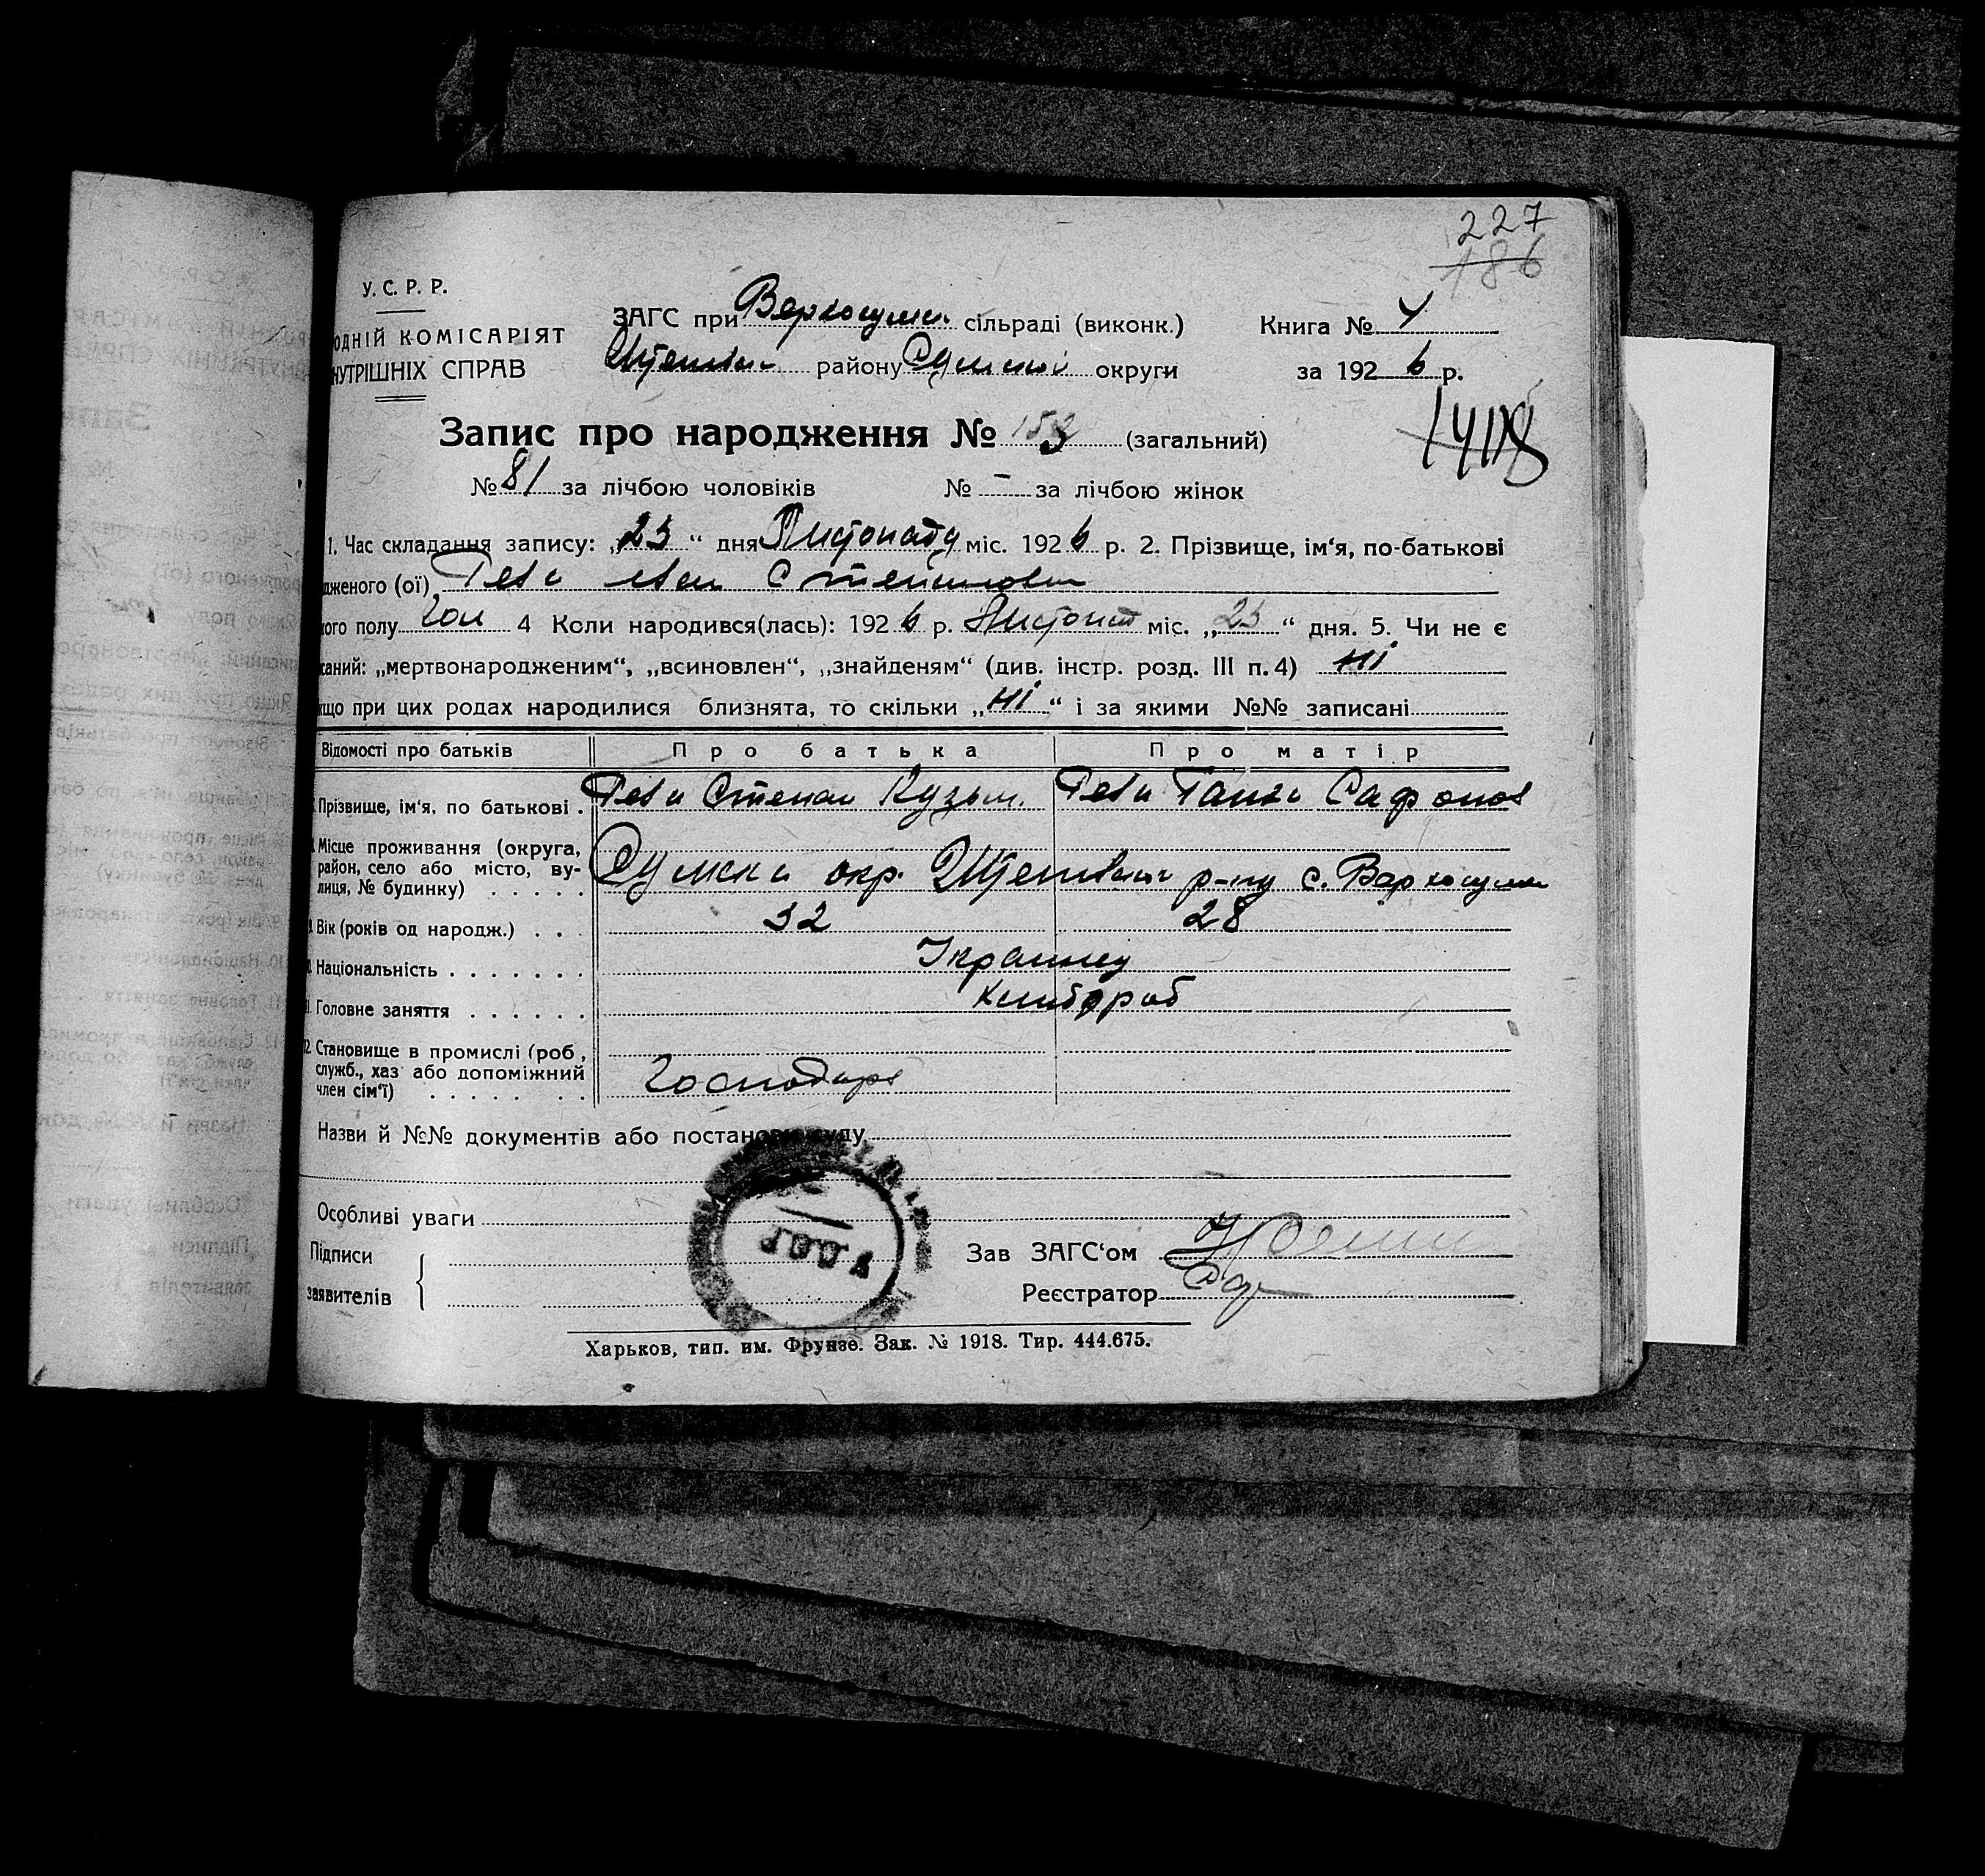 227
186
У. С. Р. Р.
ОДНІЙ КОМІСАРІЯТ
НУТРІШНІХ СПРАВ
ЗАГС при Верхосумс. сільраді (виконк.)
району Сумської округи
Книга №
за 1926 р.
Запис про народження № 153 (загальний)
1418
№ 81 за лічбою чоловіків № – за лічбою жінок
1. Час складання запису: „23“ дня Листопаду міс. 1926 р. 2. Прізвище, ім'я, по-батькові
дженого (ої) Степанович
кого полу Чол 4 Коли народився(лась): 1926 р. Листопад міс. „23“ дня. 5. Чи не є
саний: „мертвонародженим“, „всиновлен“, „знайденям“ (див. інстр. розд. III п. 4) Ні
кщо при цих родах народилися близнята, то скільки „Ні“ і за якими №№ записані
Відомості про батьків Про батька Про матір
Прізвище, ім'я, по батькові . Степан Кузьм. Ганна Сафонов
Місце проживання (округа,
район, село або місто, ву-
лиця, № будинку) . . . . .
Сумська окр. р-ну с. Верхосумка
Вік (років од народж.) . . . 32 28
Національність . . . . . . . Українец
1. Головне заняття . . . . . . хлібороб
2. Становище в промислі (роб.,
служб., хаз або допоміжний
член сім'ї) . . . . . . .
Господарь
Назви й №№ документів або постанови суду
Особливі уваги
Підписи
заявителів
Зав ЗАГС'ом
Реєстратор
Харьков, тип. им. Фрунзе. Зак. № 1918. Тир. 444.675.